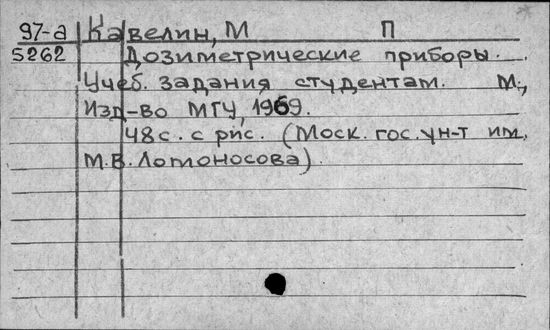 97-а Кавелин, М П
5262 Дозиметрические приборы.
Учеб. задания студентам. М.,
Изд-во МГУ, 1969.
48с. с рис. (Моск. гос. ун-т им.
М.В. Ломоносова).